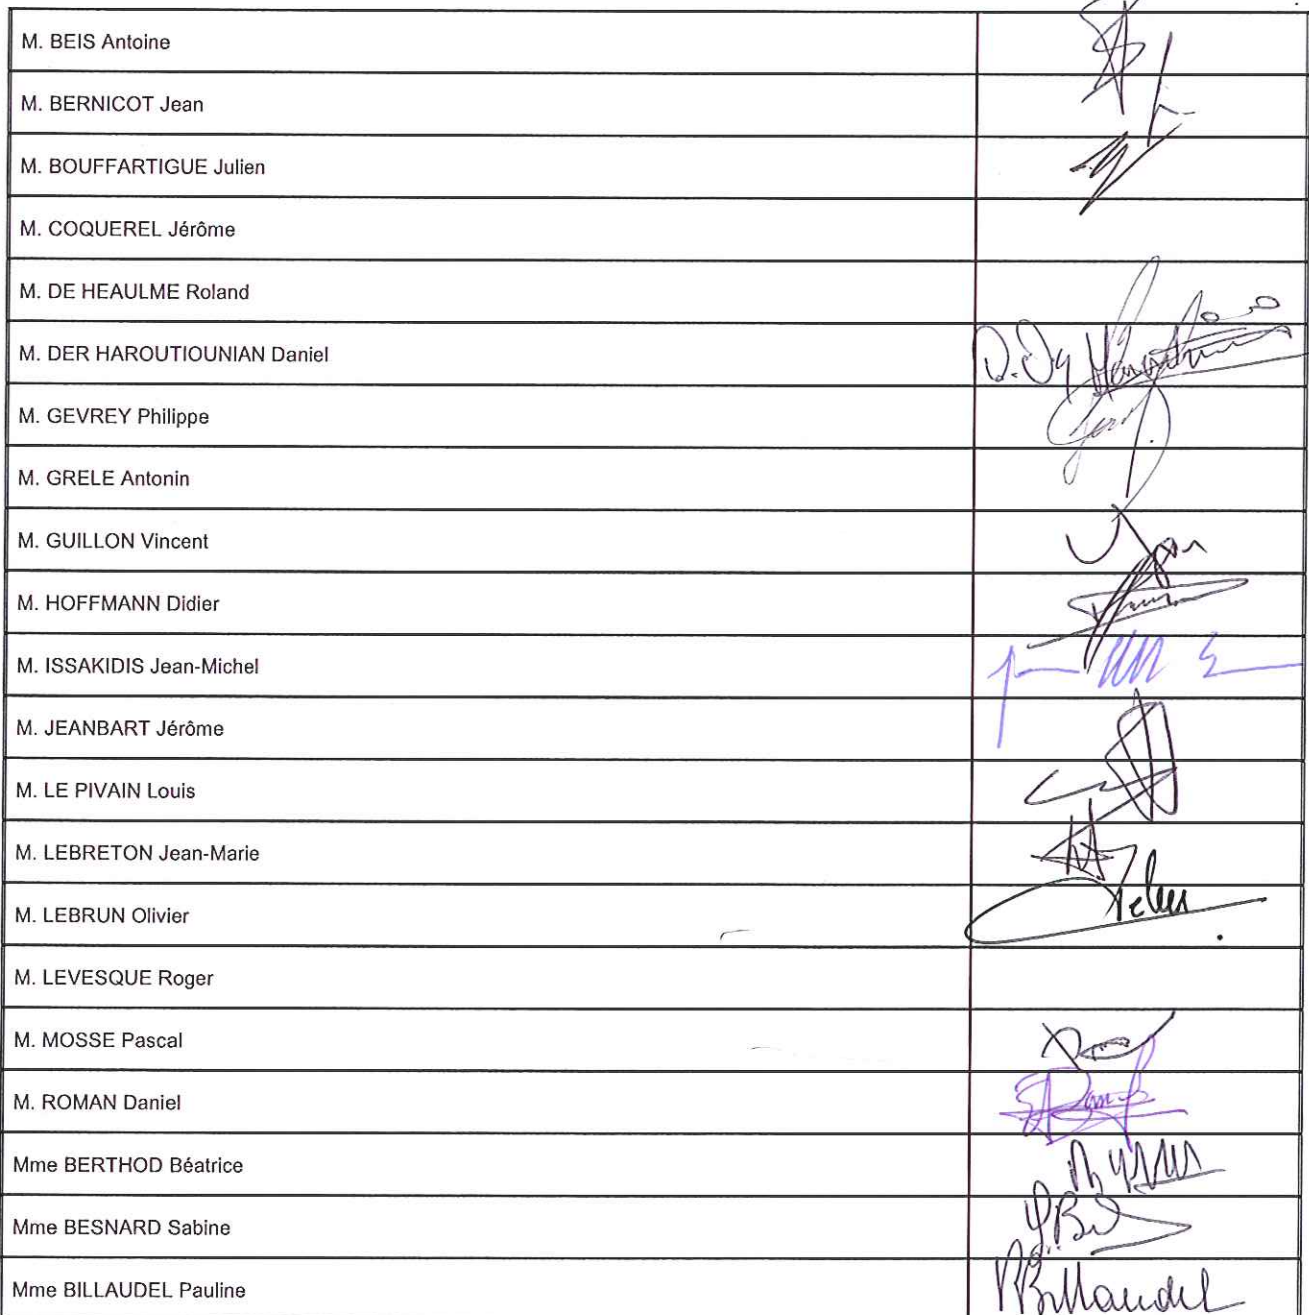 M. BEIS Antoine
M. BERNICOT Jean
M. BOUFFARTIGUE Julien
M. COQUEREL Jérôme
M. DE HEAULME Roland
M. DER HAROUTIOUNIAN Daniel
M. GEVREY Philippe
M. GRELE Antonin
M. GUILLON Vincent
M. HOFFMANN Didier
M. ISSAKIDIS Jean-Michel
M. JEANBART Jérôme
M. LE PIVAIN Louis
M. LEBRETON Jean-Marie
M. LEBRUN Olivier
M. LEVESQUE Roger
M. MOSSE Pascal
M. ROMAN Daniel
Mme BERTHOD Béatrice
Mme BESNARD Sabine
Mme BILLAUDEL Pauline Billaudel